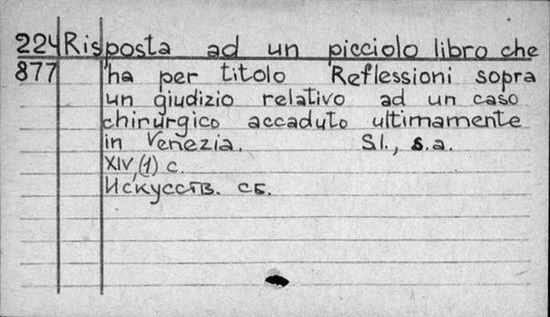 224 Risposta ad un picciolo libro che
877 ha per titolo Reflessioni sopra
un giudizio relativo ad un caso
chirurgico accaduto ultimamente
in Venezia. S.l., s.a.
XIV,(1) c.
Искусств. сб.